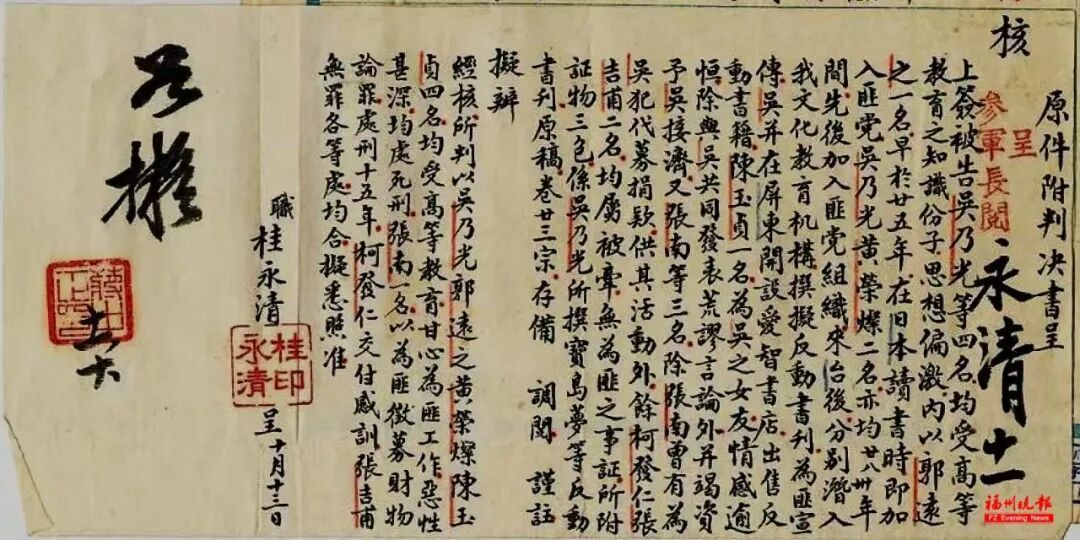 核
原件附判决書呈
呈
參軍長閱
永清十一
上簽被告吳乃光等四名均受高等
教育之知識份子思想偏激内以郭遠
之一名早於廿五年在日本讀書時即加
入匪党吳乃光黄榮燦二名亦均廿八卅年
間先後加入匪党組織來台後分别潛入
我文化教育机構撰擬反動書刊為匪宣
傳吳并在屏東開設愛智書店出售反
動書籍陳玉貞一名為吳之女友情感逾
恒除與吳共同發表荒謬言論外并竭資
予吳接濟又張南等三名除張南曾有為
吳犯代募捐欵供其活動外餘柯發仁張
吉甫二名均屬被牽無為匪之事証所附
証物三包係吳乃光所撰寶島夢等反動
書刊原稿卷廿三宗存備 調閱 謹註
擬辦
經核所判以吳乃光郭遠之黄榮燦陳玉
貞四名均受高等教育甘心為匪工作惡性
甚深均處死刑張南一名以為匪徵募財物
論罪處刑十五年柯發仁交付感訓張吉甫
無罪各等處均合擬悉照准
職 桂永清 呈十月十三日
桂永清印
如擬
福州晚报
FZ Evening News